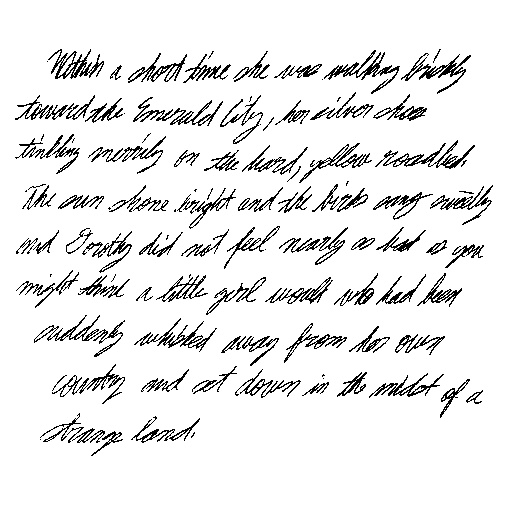 Within a short time she was walking briskly
toward the Emerald City, her silver shoes
tinkling merrily on the hard, yellow roadbed.
The sun shone bright and the birds sang sweetly
and Dorothy did not feel nearly as bad as you
might think a little girl would who had been
suddenly whisked away from her own
country and set down in the midst of a
strange land.